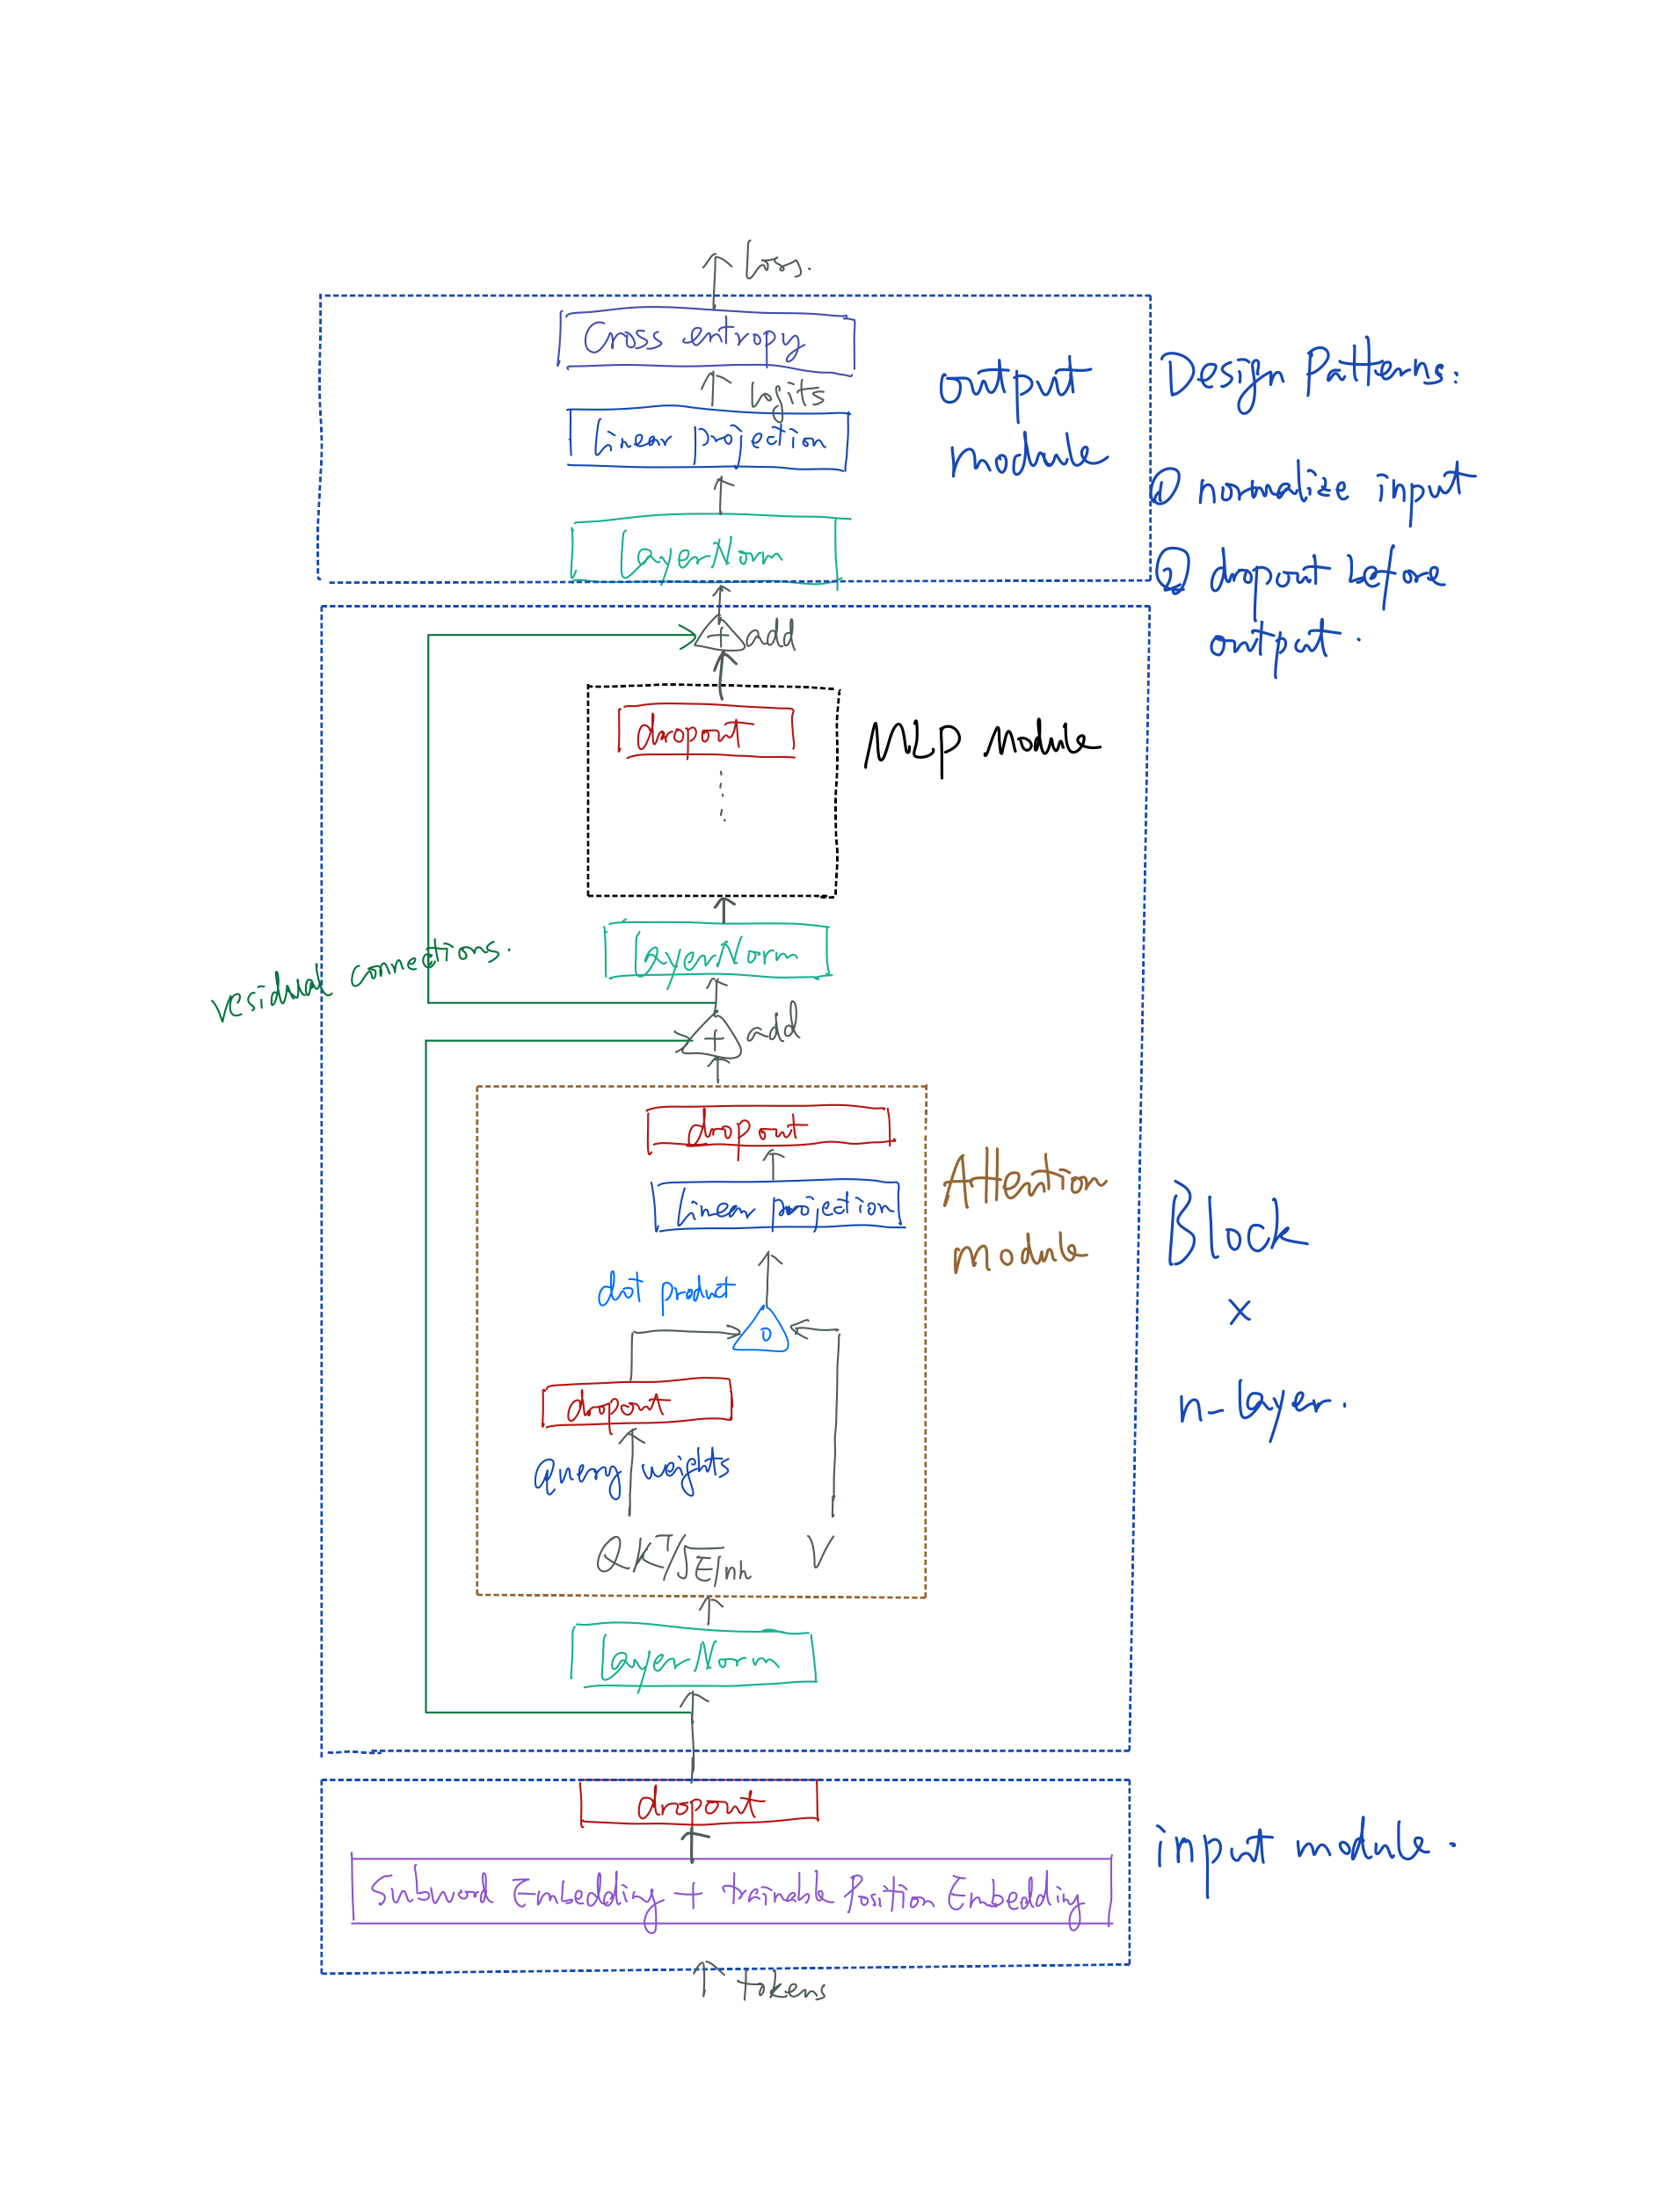 loss.
Cross entropy
logits
linear projection
LayerNorm
output
module
Design Patterns:
① normalize input
② dropout before
output.
+ add
dropout
MLP module
LayerNorm
residual connections.
+ add
dropout
linear projection
Attention
module
dot product
dropout
query weights
QKᵀ/√E/nh
V
LayerNorm
Block
×
n-layer.
dropout
Subword Embedding + trainable Position Embedding
input module.
tokens